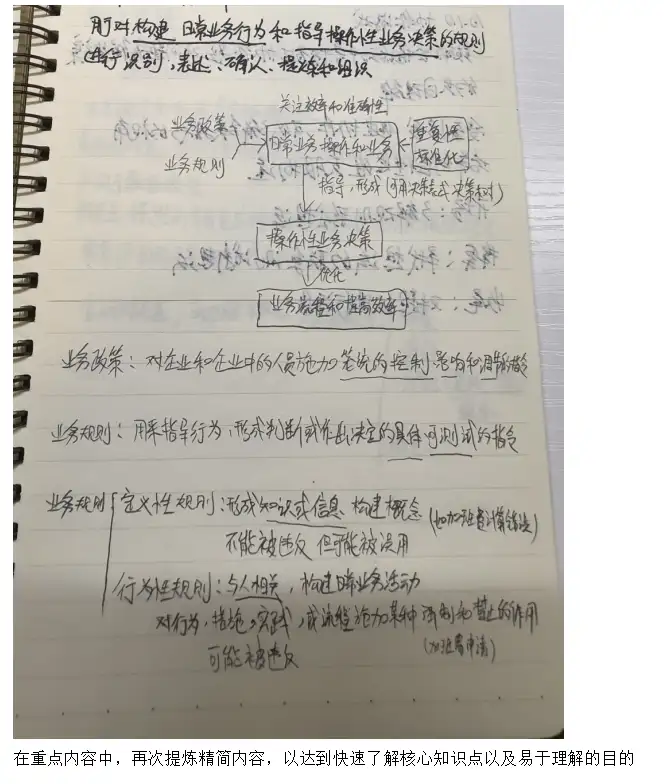 用对构建 日常业务行为和指导操作性业务决策的规则
进行识别、表述、确认、提炼和组织
关注效率和准确性
业务政策
日常业务操作和业务
重复性
标准化
业务规则
指导,形成(可用决策表或决策树)
操作性业务决策
优化
业务流程和提高效率
业务政策:对企业和企业中的人员施加笼统的控制 影响和调节的指令
业务规则:用来指导行为,形成判断或作出决定的具体可测试的指令
业务规则
定义性规则:形成知识或信息 构建概念(如加班费计算错误)
不能被违反 但可能被误用
行为性规则:与人相关,构建日常业务活动
对行为,措施,实践,或流程施加某种 强制和禁止的作用
可能被违反
(加班需申请)
在重点内容中,再次提炼精简内容,以达到快速了解核心知识点以及易于理解的目的